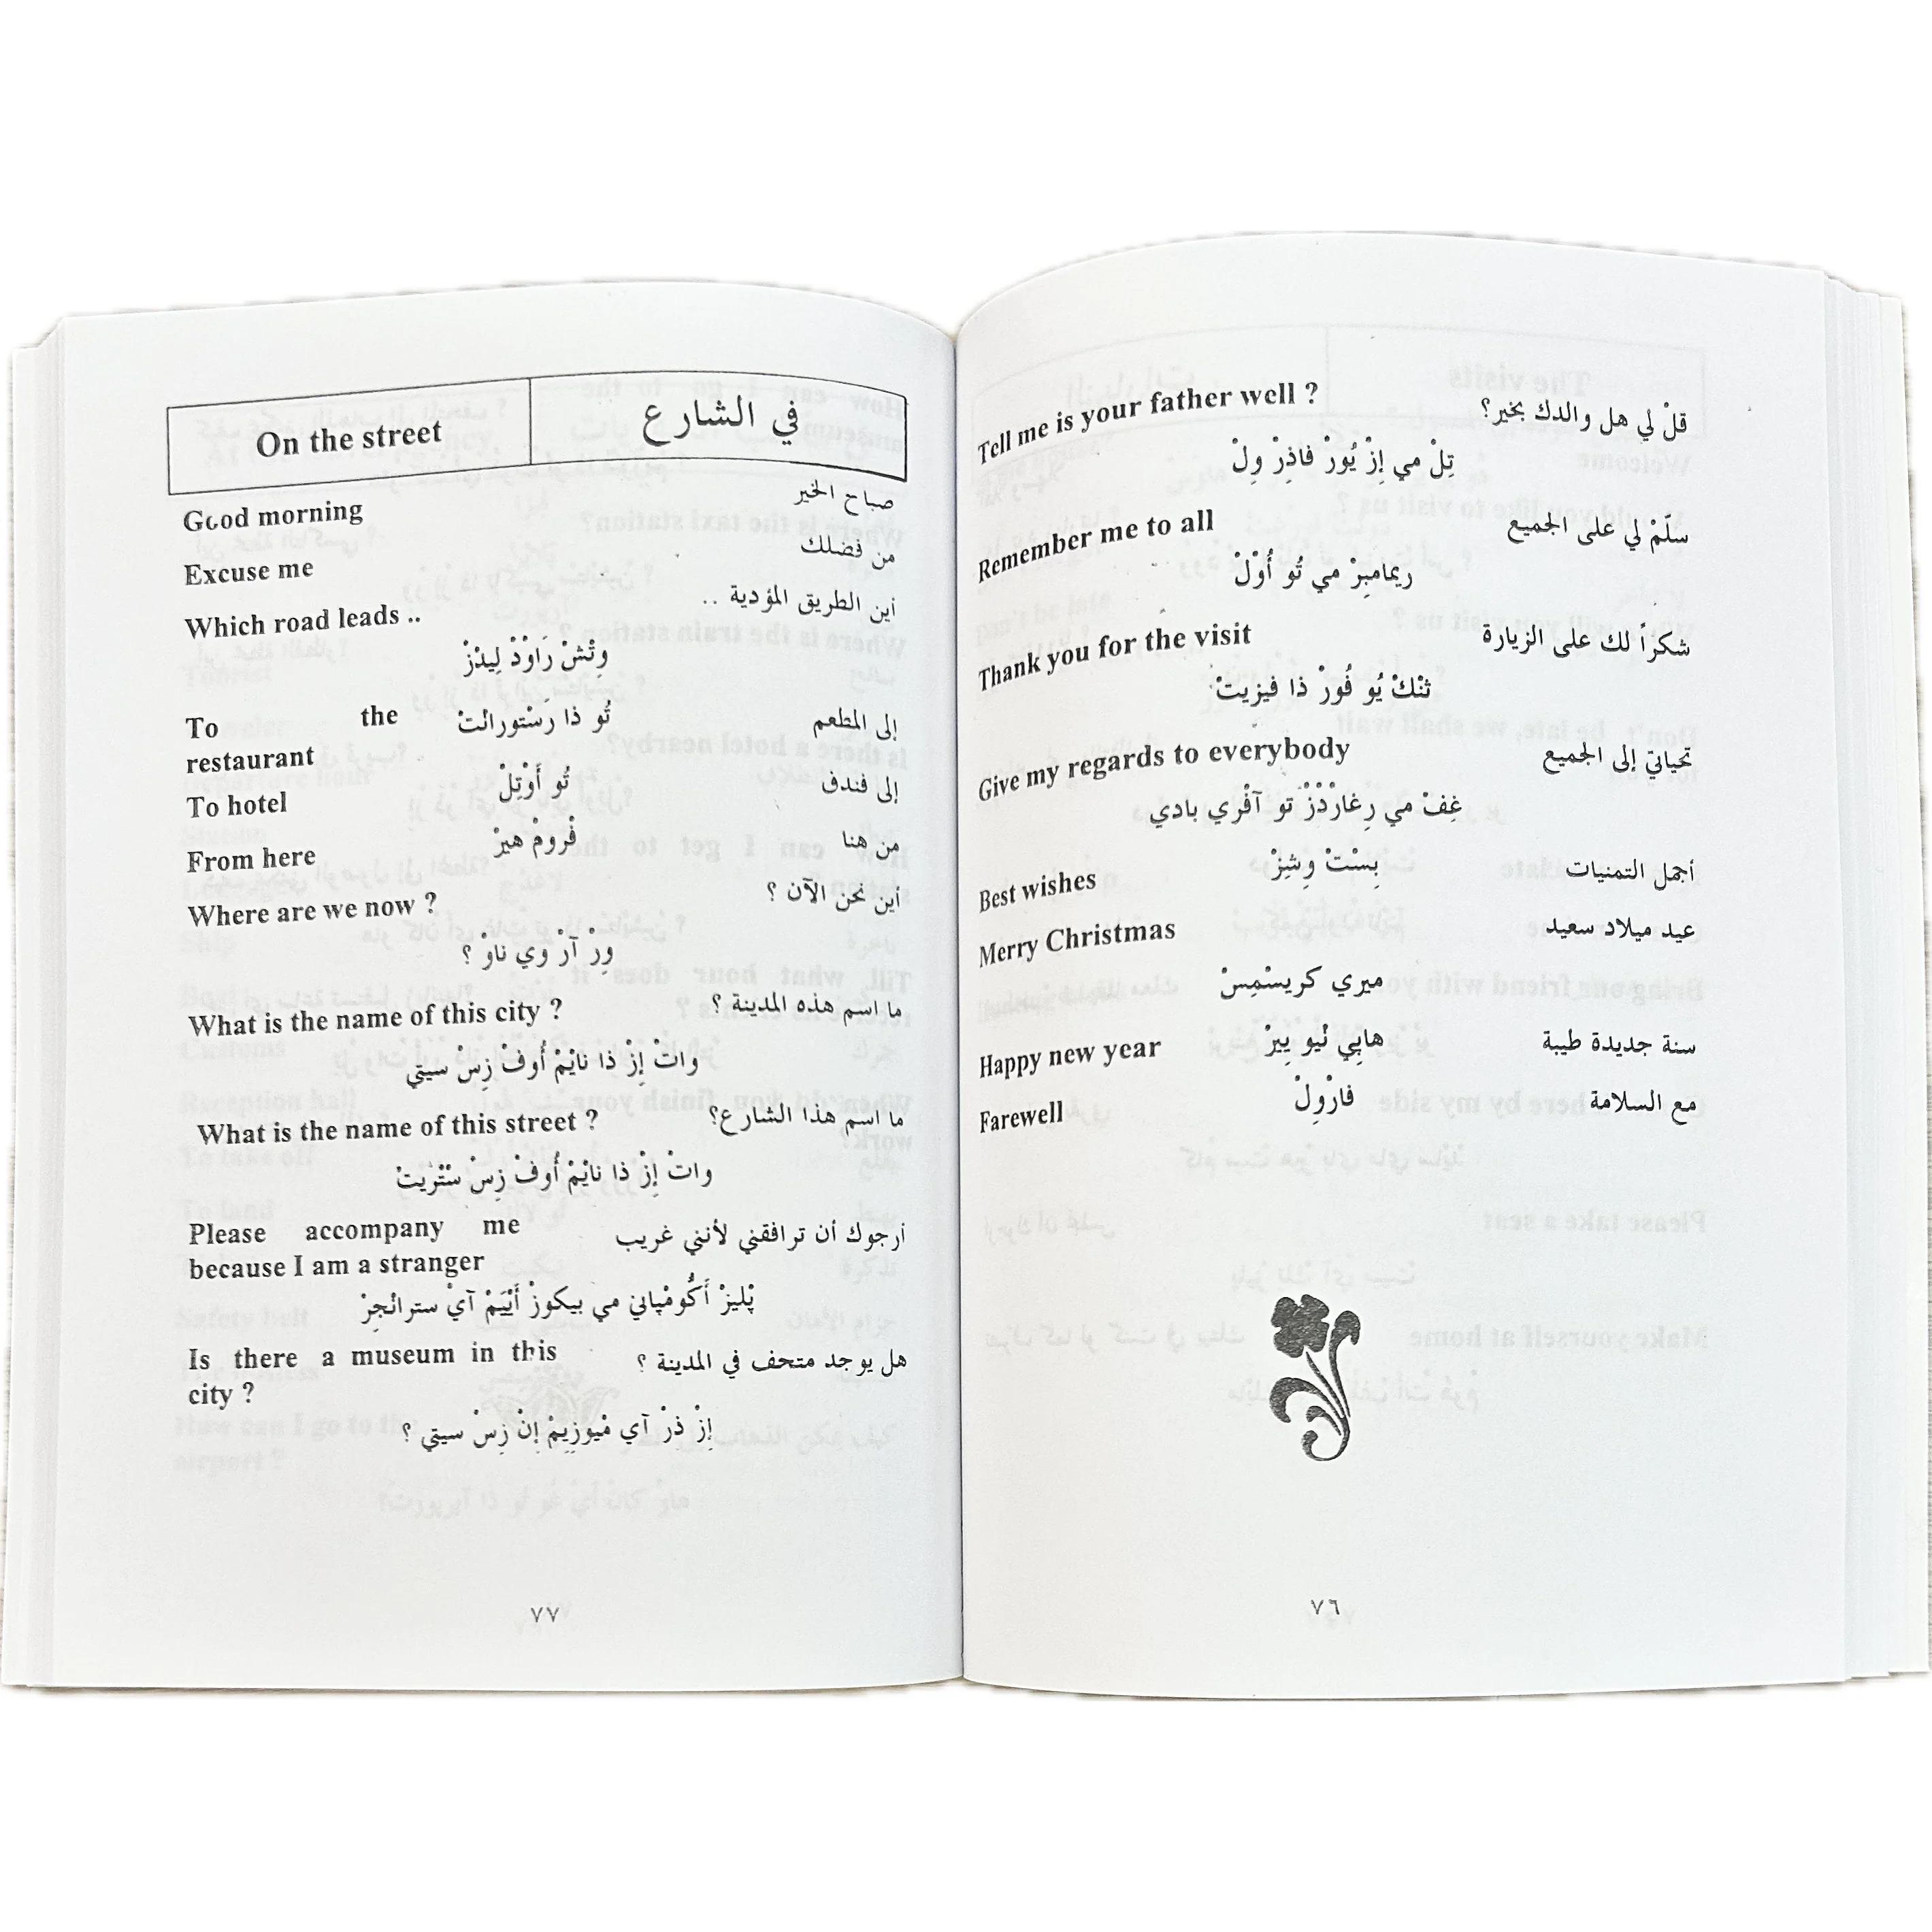 Tell me is your father well ? قلْ لي هل والدك بخير؟
تِلْ مي إِزْ يُورْ فاذِرْ وِلْ
Remember me to all سلّمْ لي على الجميع
ريمامبِرْ مي تُو أُوْلْ
Thank you for the visit شكراً لك على الزيارة
ثنْكْ يُو فُورْ ذا فيزيتْ
Give my regards to everybody تحياتي إلى الجميع
غِفْ مي رِغارْدْزْ تو آفْري بادي
Best wishes بِسْتْ وِشِزْ أجمل التمنيات
Merry Christmas عيد ميلاد سعيد
ميري كريسْمِسْ
Happy new year هابِي نْيو يِيرْ سنة جديدة طيبة
Farewell فارْوِلْ مع السلامة
٧٦
On the street في الشارع
Good morning صباح الخير
Excuse me من فضلك
Which road leads .. أين الطريق المؤدية ..
وِتْشْ رَاوْدْ لِيدْزْ
To the تُو ذا رَسْتورانْتْ إلى المطعم
restaurant
To hotel تُو أَوْتِلْ إلى فندف
From here فْرومْ هيرْ من هنا
Where are we now ? أين نحن الآن ؟
وِرْ آرْ وي ناوْ ؟
What is the name of this city ? ما اسم هذه المدينة ؟
واتْ إِزْ ذا نايْمْ أُوفْ زِسْ سيتي
What is the name of this street ? ما اسم هذا الشارع؟
واتْ إِزْ ذا نايْمْ أُوفْ زِسْ سْتْريتْ
Please accompany me أرجوك أن ترافقني لأنني غريب
because I am a stranger
پْليزْ أَكُّومْپاني مي بيكوزْ أَيْيَمْ آيْ سترانْجِرْ
Is there a museum in this هل يوجد متحف في المدينة ؟
city ?
إِزْ ذرْ آي مْيوزِيِمْ إِنْ زِسْ سيتي ؟
٧٧